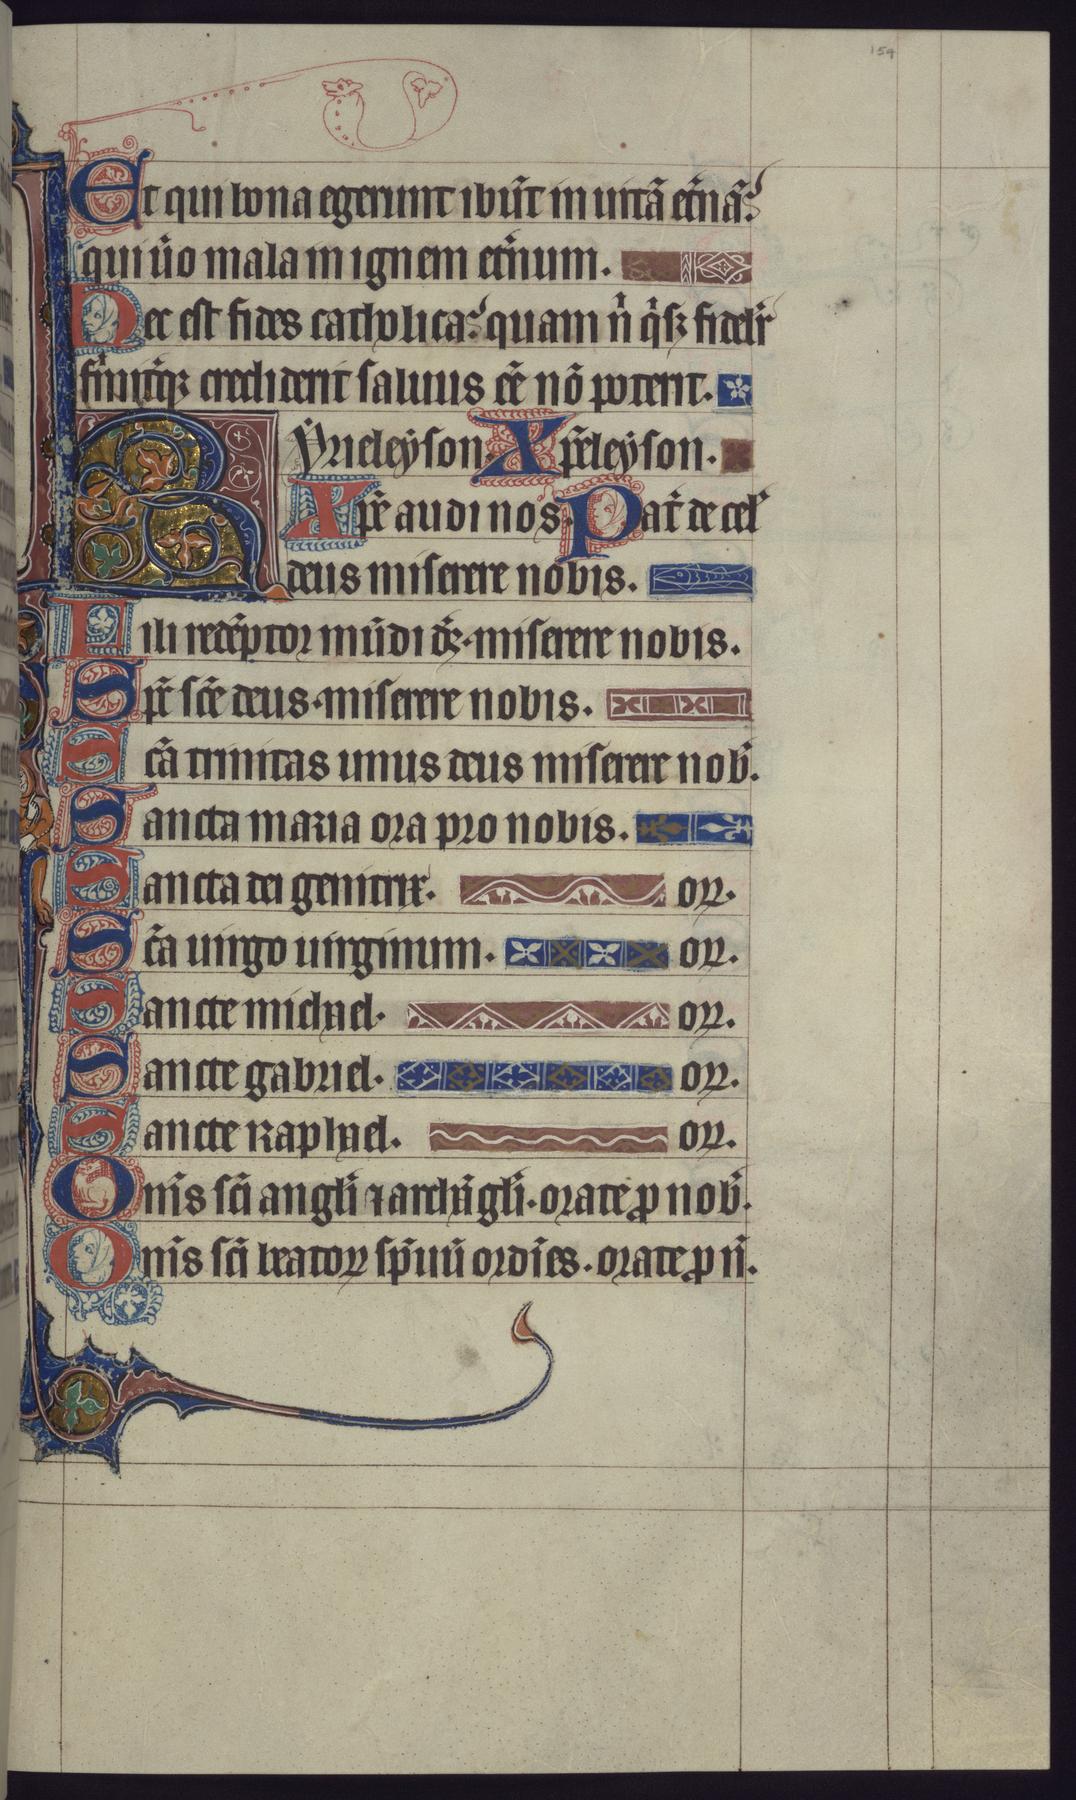 154
Et qui bona egerunt ibu̅t in uita̅ et̅na̅:
qui u̅o mala in ignem et̅num.
Hec est fides catholica: quam ni̅ q̅sq̅ fidelit̅
firmit̅q̅ crediderit saluus ee̅ no̅ poterit.
Kyrieleyson. Xp̅eleyson.
Xpe̅ audi nos. Pat̅ de cel̅
deus miserere nobis.
Fili rede̅ptor mu̅di ds̅. miserere nobis.
Sp̅c sc̅e deus. miserere nobis.
Sc̅a trinitas unus deus miserere nob̅.
Sancta maria ora pro nobis.
Sancta dei genitrix. orꝝ.
Sc̅a uirgo uirginum. orꝝ.
Sancte michael. orꝝ.
Sancte gabriel. orꝝ.
Sancte raphael. orꝝ.
Om̅s sc̅i angl̅i ⁊ archa̅gl̅i. orate p̲ nob̅.
Om̅s sc̅i beatoꝝ sp̅iuu̅ ordi̅es. orate p̲ n̅.